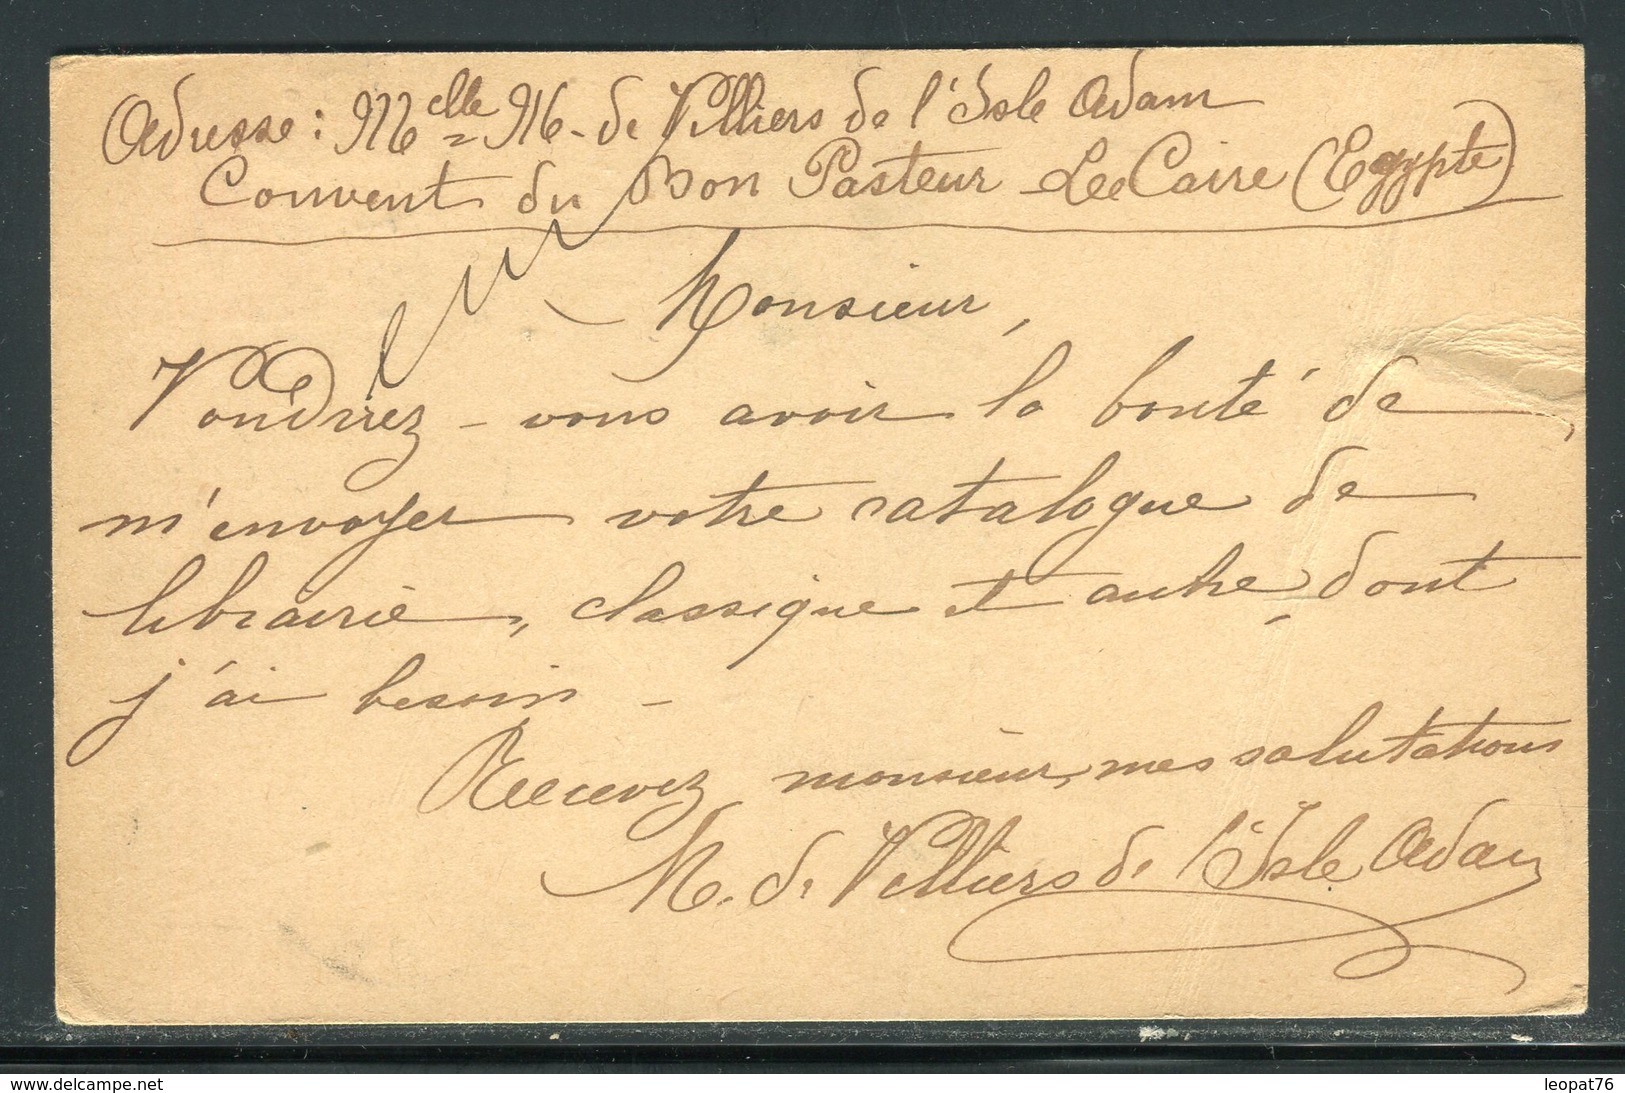 Adresse : Melle M. de Villiers de l'Isle Adam
Convent du Bon Pasteur Le Caire (Egypte)
Monsieur,
Voudriez-vous avoir la bonté de
m'envoyer votre catalogue de
librairie, classique et autre, dont
j'ai besoin -
Recevez monsieur, mes salutations
M. de Villiers de l'Isle Adam
© delcampe.net
leopat76